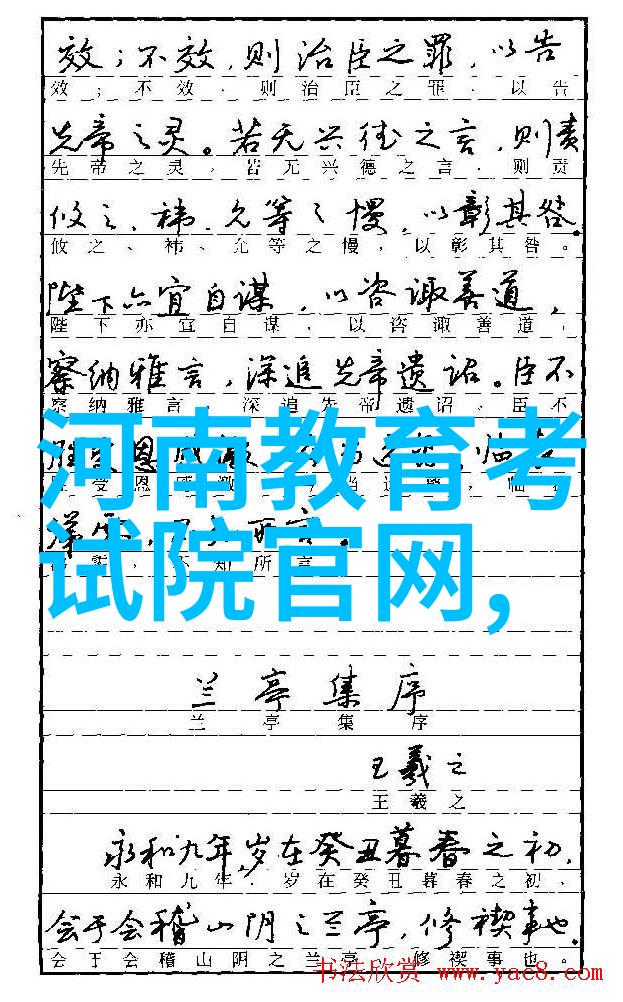 效；不效，则治臣之罪，以告
效；不效、则治臣之罪、以告
先帝之灵。若无兴德之言，则责
先帝之灵，若无兴德之言、则责
攸之、祎、允等之慢，以彰其咎。
攸之、祎、允等之慢，以彰其咎。
陛下亦宜自谋，以咨诹善道，
陛下亦宜自谋，以咨诹善道，
察纳雅言，深追先帝遗诏。臣不
察纳雅言，深追先帝遗诏。臣不
河南教育考
试院官网,
兰亭集序
兰亭集序
王羲之
王羲之
永和九年,岁在癸丑暮春之初，
永和九年．岁在癸丑暮春之初、
会于会稽山阴之兰亭，修禊事也。
会于会稽山阴之兰亭，修禊事也。
书法欣赏 www.yac8.com